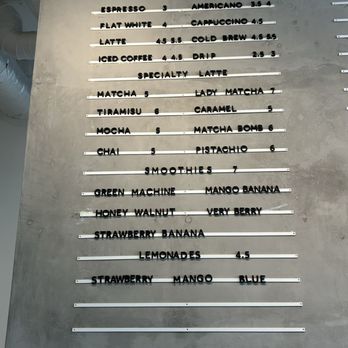 ESPRESSO 3 AMERICANO 3.5 4
FLAT WHITE 4 CAPPUCCINO 4.5
LATTE 4.5 5.5 COLD BREW 4.5 5.5
ICED COFFEE 4 4.5 DRIP 2.5 3
SPECIALTY LATTE
MATCHA 5 LADY MATCHA 7
TIRAMISU 6 CARAMEL 5
MOCHA 5 MATCHA BOMB 6
CHAI 5 PISTACHIO 6
SMOOTHIES 7
GREEN MACHINE MANGO BANANA
HONEY WALNUT VERY BERRY
STRAWBERRY BANANA
LEMONADES 4.5
STRAWBERRY MANGO BLUE